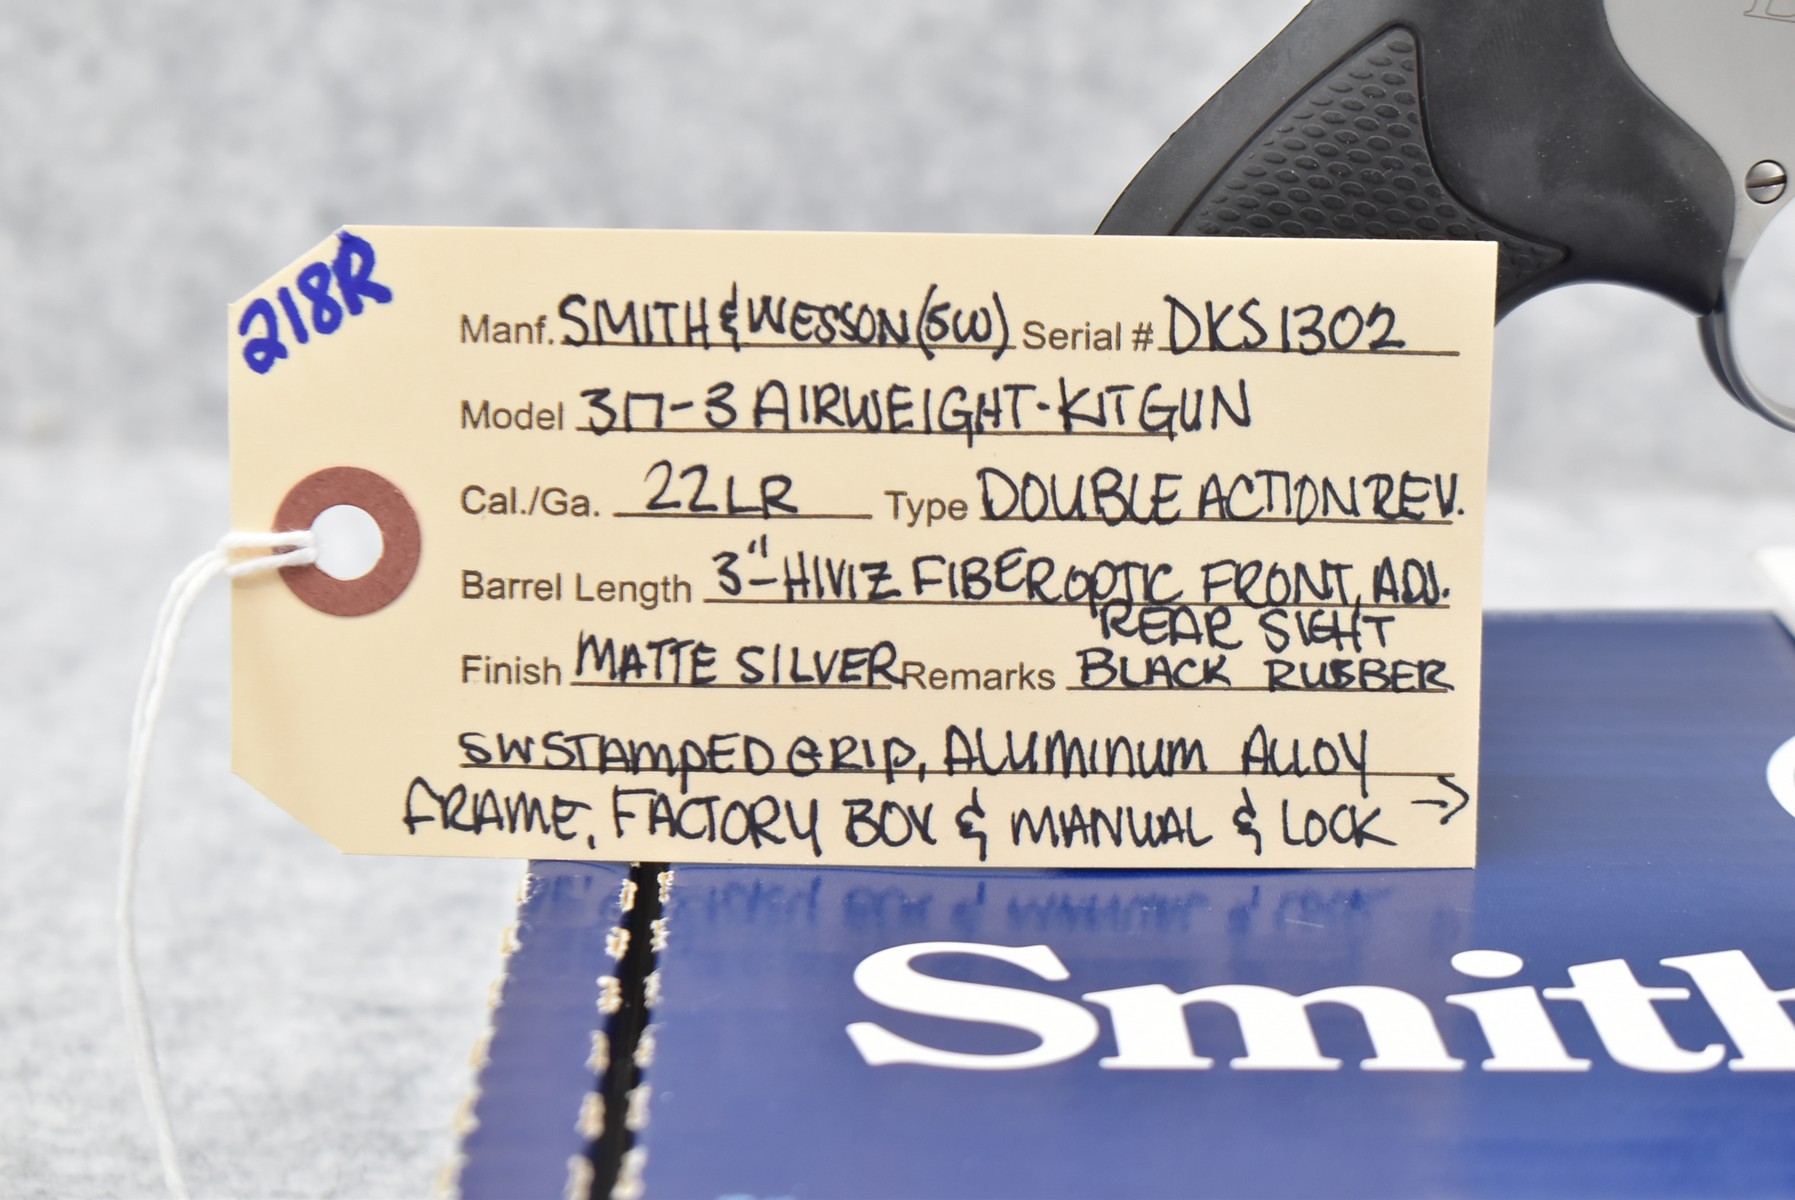 218R
Manf. SMITH & WESSON (SW) Serial # DKS1302
Model 317-3 AIRWEIGHT-KIT GUN
Cal./Ga. 22LR Type DOUBLE ACTION REV.
Barrel Length 3"-HIVIZ FIBER OPTIC FRONT, ADJ.
REAR SIGHT
Finish MATTE SILVER Remarks BLACK RUBBER
SW STAMPED GRIP, ALUMINUM ALLOY
FRAME, FACTORY BOX & MANUAL & LOCK →
Smith